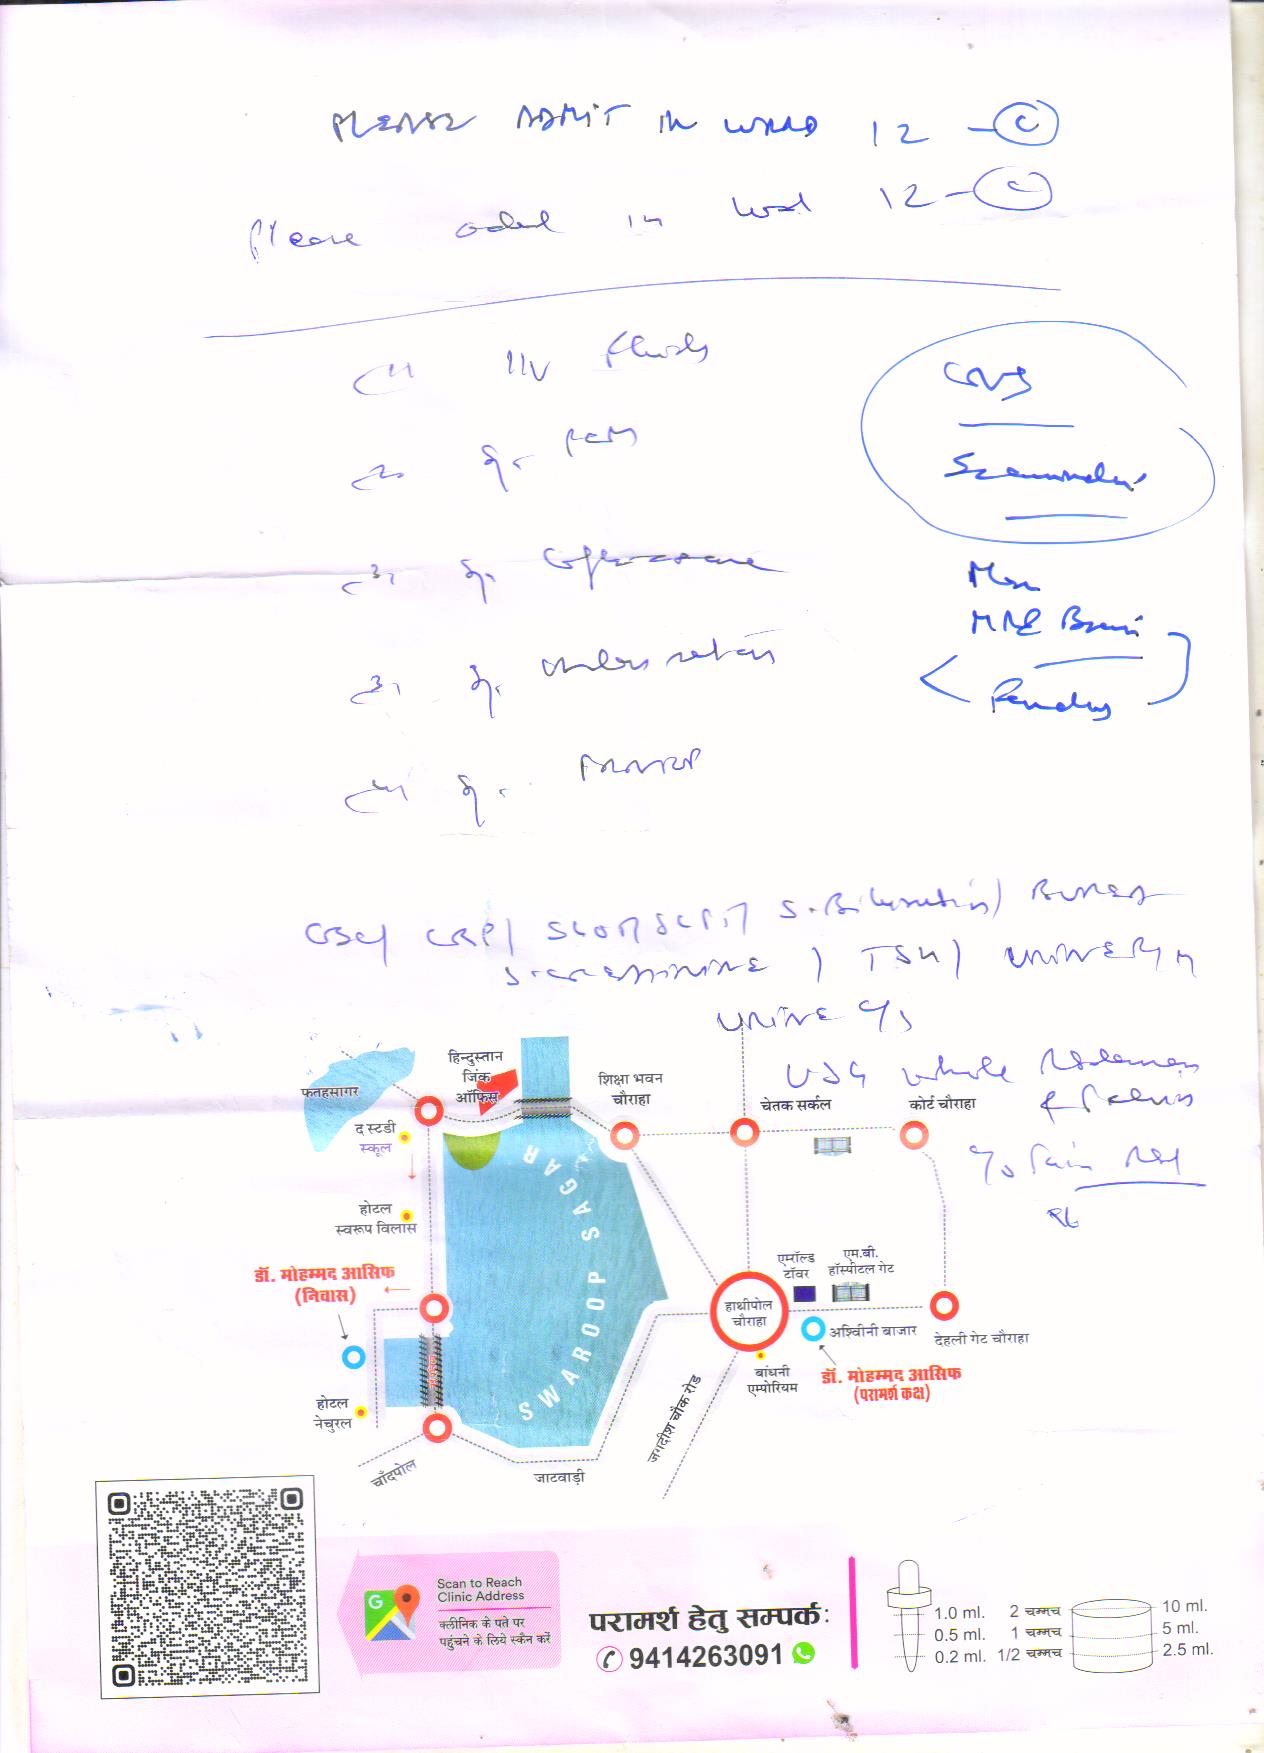 PLEASE ADMIT IN WARD 12 - C
Please admit in ward 12 - C
(1) I/V fluids
(2) Inj. PCM
CNS
Examination
(3) Inj.
(3) Inj. Ondansetron
(4) Inj.
MRI Brain
Pending
CBC/ CRP/ SGOT/SGPT/ S. Bilirubin/ B. UREA
S. CREATININE / TSH/ URINE R/M
URINE C/S
USG whole Abdomen
& Pelvis
फतहसागर
हिन्दुस्तान
जिंक
ऑफिस
शिक्षा भवन
चौराहा
चेतक सर्कल
कोर्ट चौराहा
द स्टडी
स्कूल
होटल
स्वरूप विलास
SWAROOP SAGAR
डॉ. मोहम्मद आसिफ
(निवास)
एमरॉल्ड
टॉवर
एम.बी.
हॉस्पीटल गेट
हाथीपोल
चौराहा
अश्विीनी बाजार
देहली गेट चौराहा
बांधनी
एम्पोरियम
डॉ. मोहम्मद आसिफ
(परामर्श कक्ष)
होटल
नेचुरल
जगदीश चौक रोड
चाँदपोल
जाटवाड़ी
Scan to Reach
Clinic Address
क्लीनिक के पते पर
पहुंचने के लिये स्कैन करें
परामर्श हेतु सम्पर्क:
9414263091
1.0 ml.
0.5 ml.
0.2 ml.
2 चम्मच
1 चम्मच
1/2 चम्मच
10 ml.
5 ml.
2.5 ml.